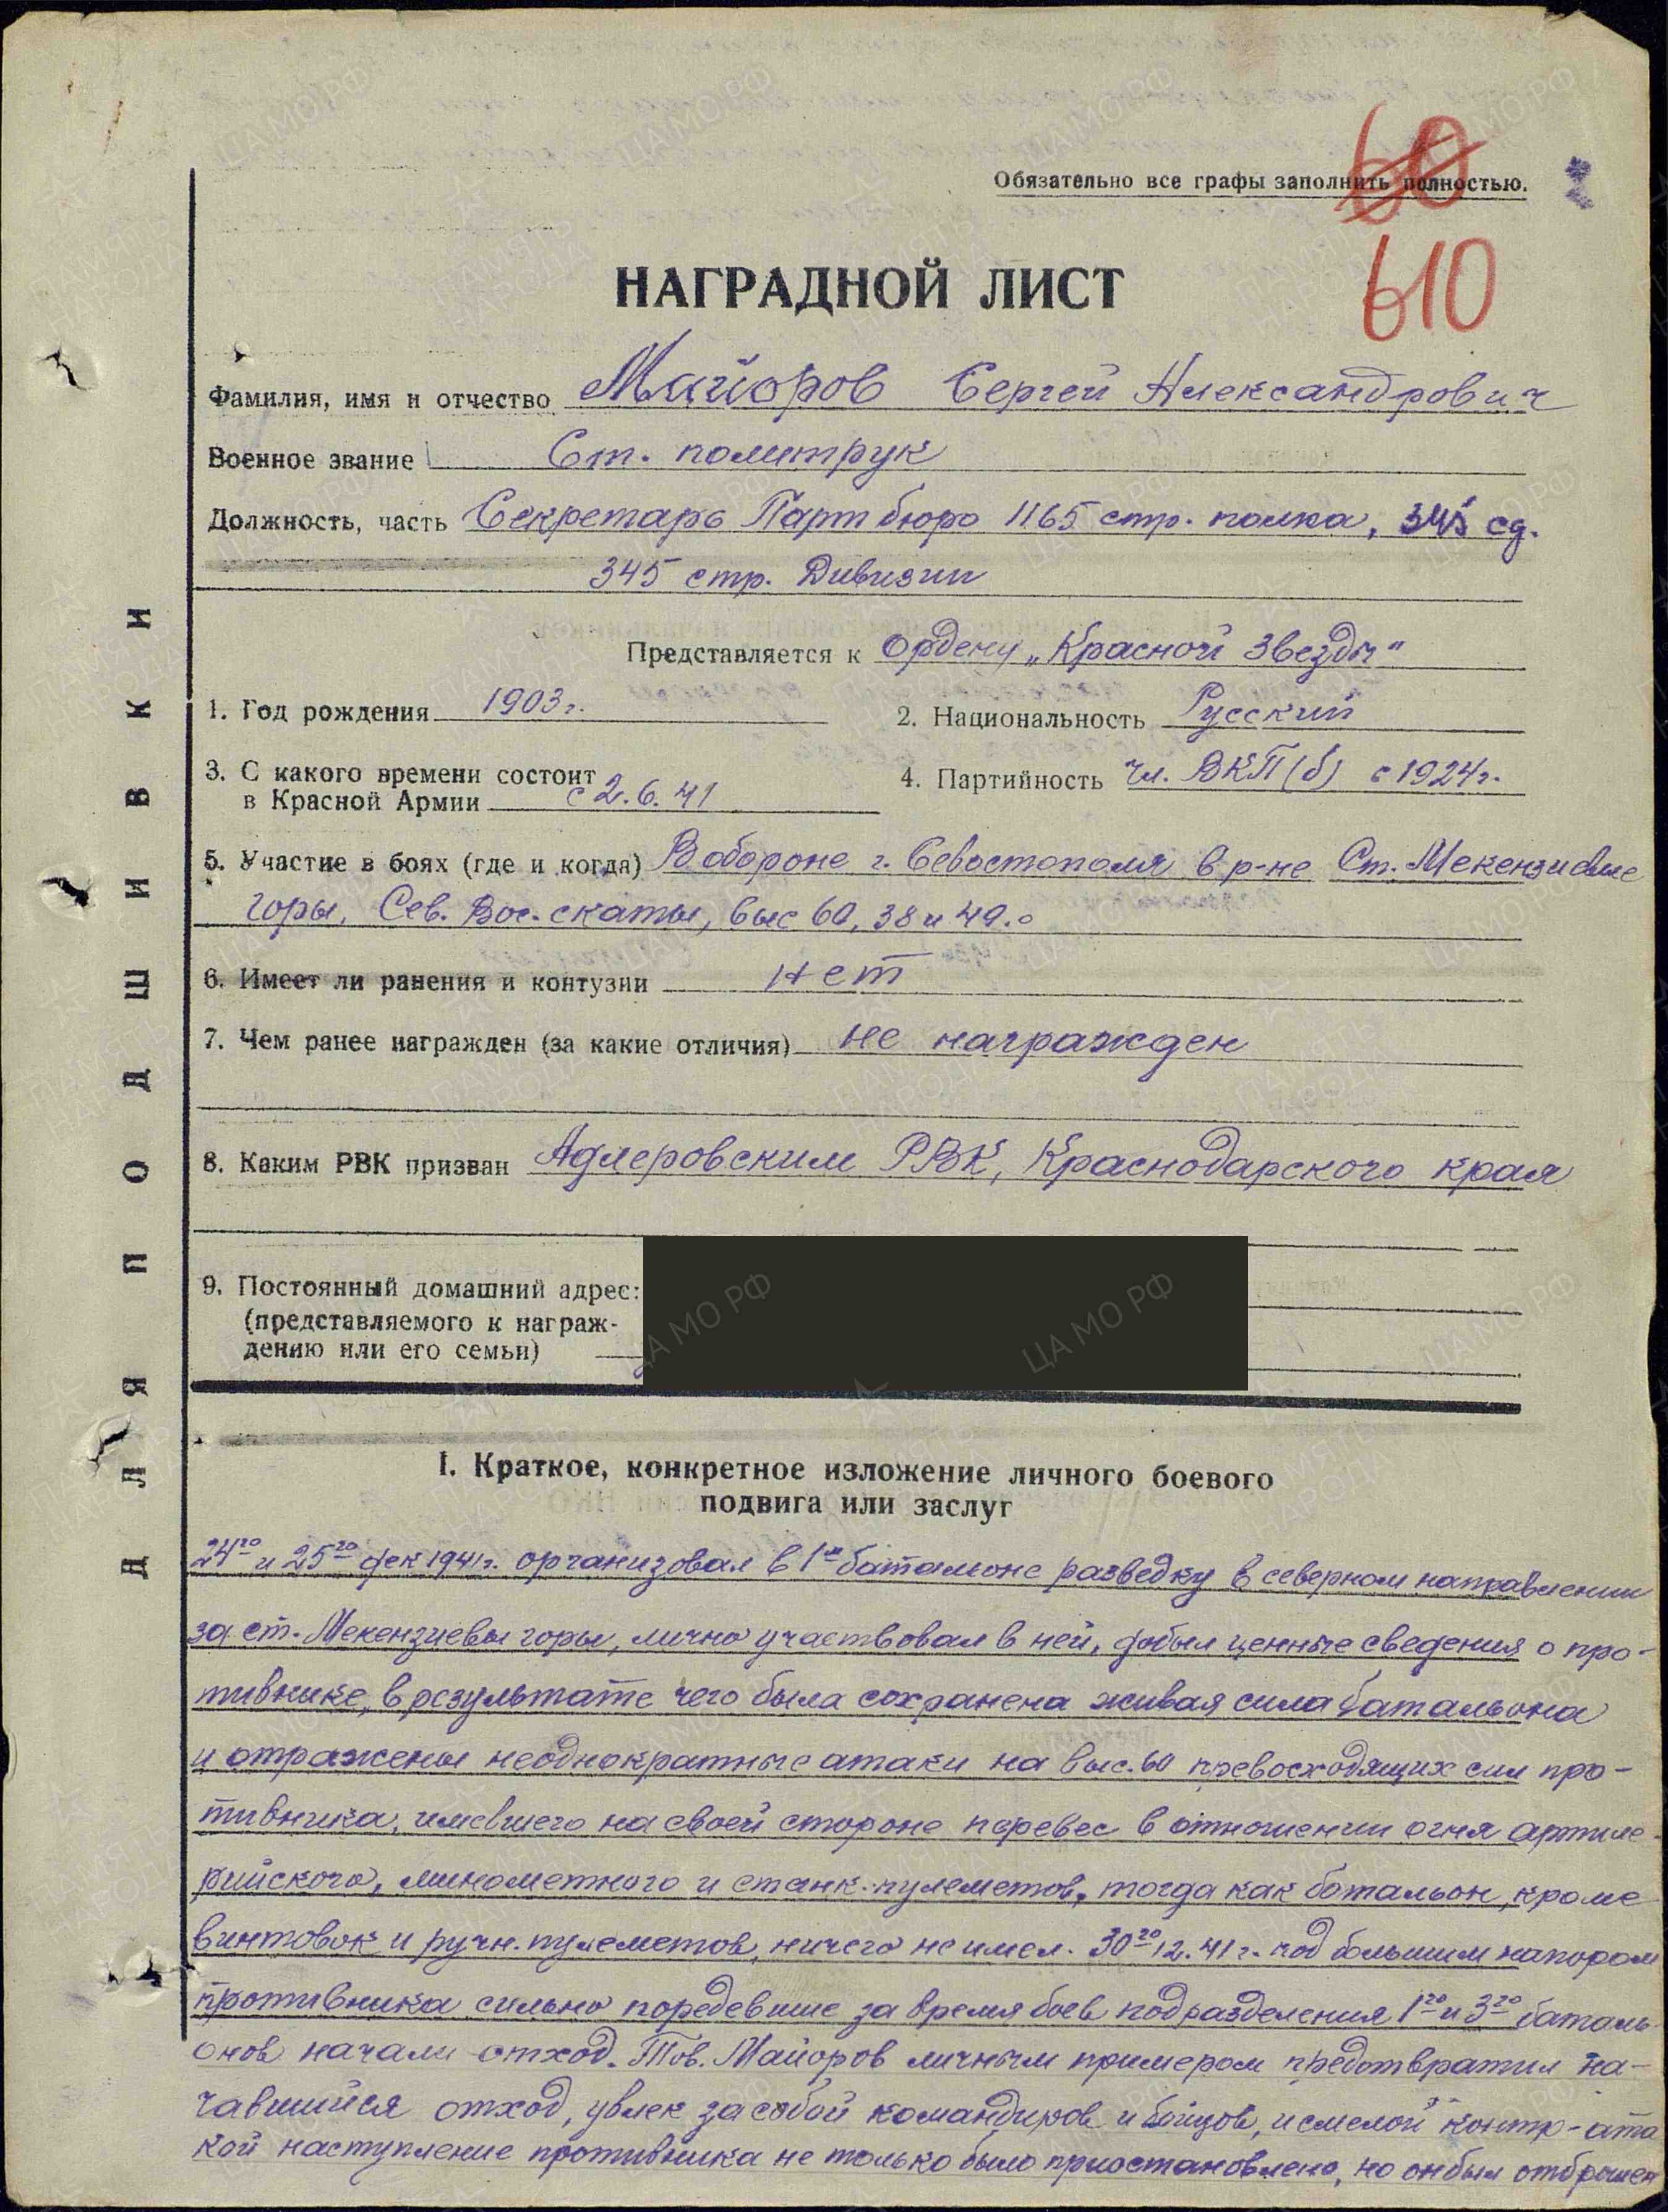 Обязательно все графы заполнить полностью.
60
610
НАГРАДНОЙ ЛИСТ
Фамилия, имя и отчество Майоров Сергей Александрович
Военное звание Ст. политрук
Должность, часть Секретарь Парт бюро 1165 стр. полка, 345 сд.
345 стр. Дивизии
Представляется к ордену „Красной Звезды"
1. Год рождения 1903 г.
2. Национальность Русский
3. С какого времени состоит
в Красной Армии с 2.6.41
4. Партийность чл. ВКП(б) с 1924 г.
5. Участие в боях (где и когда) В обороне г. Севостополя в р-не Ст. Мекензиевые
горы, Сев. Вос. скаты, выс 60, 38 и 49.0
6. Имеет ли ранения и контузии нет
7. Чем ранее награжден (за какие отличия) не награжден
8. Каким РВК призван Адлеровским РВК, Краснодарского края
9. Постоянный домашний адрес:
(представляемого к награж-
дению или его семьи)
ДЛЯ ПОДШИВКИ
I. Краткое, конкретное изложение личного боевого
подвига или заслуг
24го и 25го дек 1941 г. организовал в 1м батальоне разведку в северном направлении
за ст. Мекензиевы горы, лично участвовал в ней, добыл ценные сведения о про-
тивнике, в результате чего была сохранена живая сила батальона
и отражены неоднократные атаки на выс. 60 превосходящих сил про-
тивника, имевшего на своей стороне перевес в отношении огня артиле-
рийского, минометного и станк. пулеметов, тогда как батальон, кроме
винтовок и ручн. пулеметов, ничего не имел. 30го 12.41 г. под большим напором
противника сильно поредевшие за время боев подразделения 1го и 3го баталь-
онов начали отход. Тов. Майоров личным примером предотвратил на-
чавшийся отход, увлек за собой командиров и бойцов, и смелой контр-ата
кой наступление противника не только было приостановлено, но он был отброшен
ЦА МО РФ
ПАМЯТЬ НАРОДА